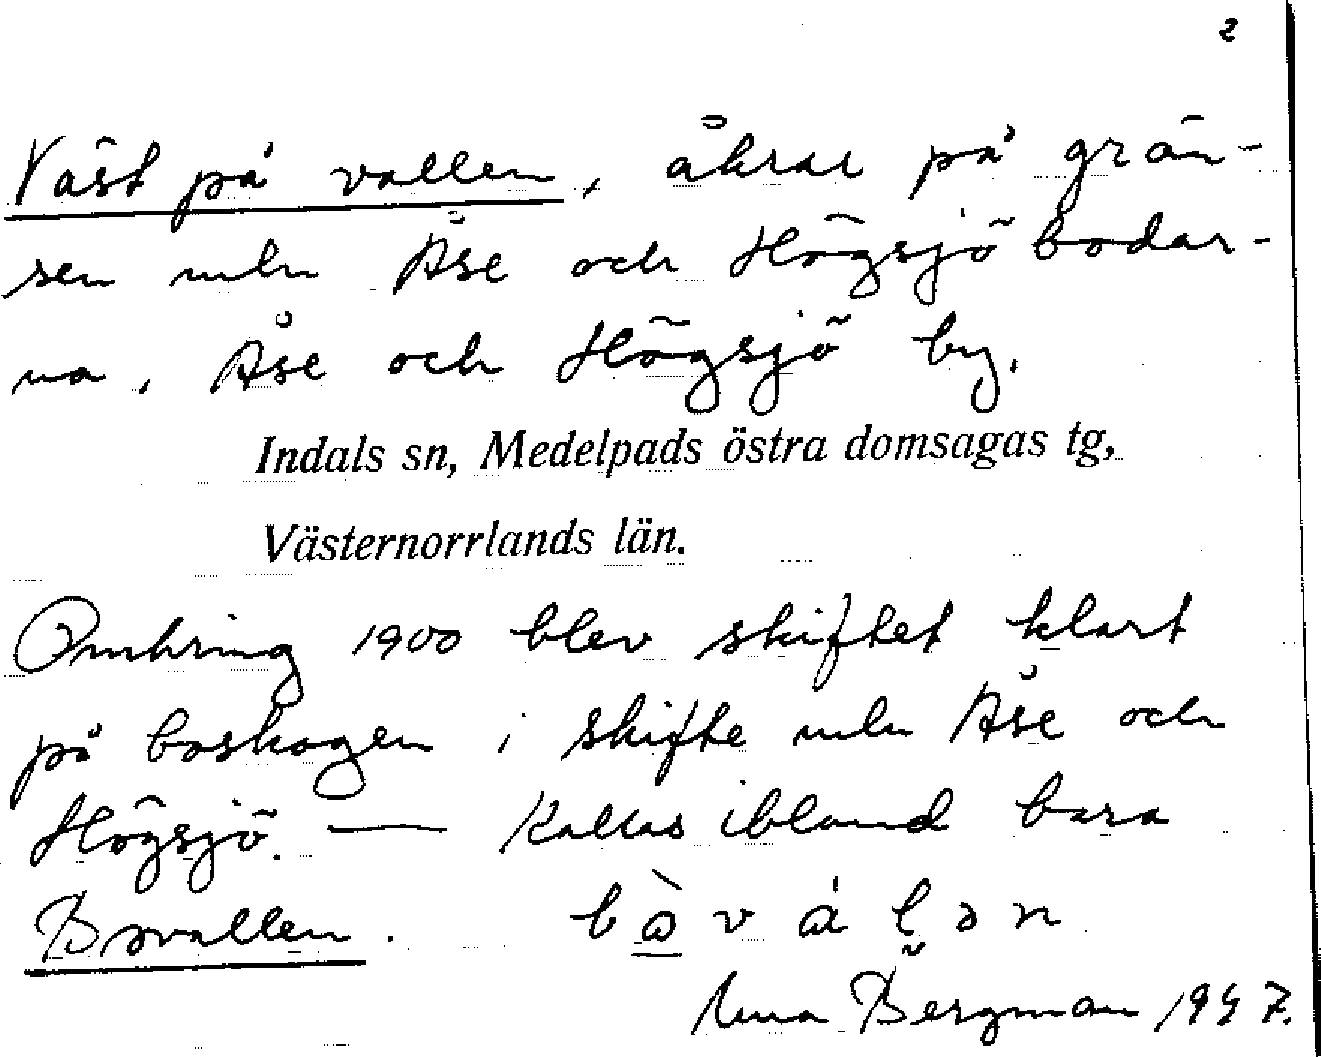 2
Väst på vallen, åkrar på grän-
sen mln Åse och Högsjö bodar-
na, Åse och Högsjö by.
Indals sn, Medelpads östra domsagas tg,
Västernorrlands län.
Omkring 1900 blev skiftet klart
på boskogen i skifte mln Åse och
Högsjö. — Kallas ibland bara
Bovallen.
Bergman